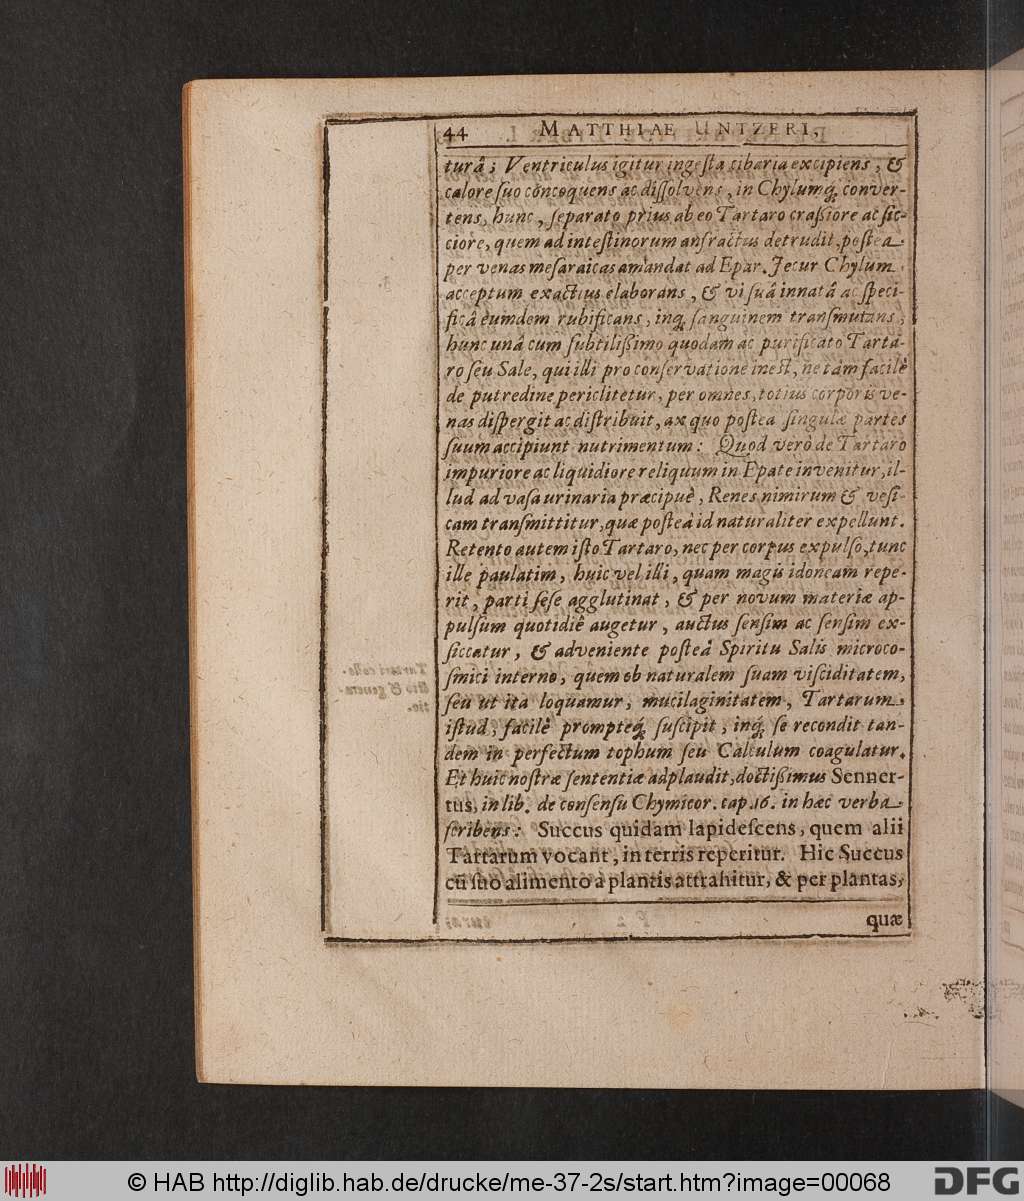 44 MATTHIAE UNTZERI,
turâ; Ventriculus igitur ingeſta cibaria excipiens, &
calore ſuo concoquens ac diſſolvens, in Chylumq́; conver-
tens, hunc, ſeparato prius ab eo Tartaro craßiore ac ſic-
ciore, quem ad inteſtinorum anfractus detrudit, poſtea
per venas meſaraicas amandat ad Epar. Jecur Chylum
acceptum exactius elaborans, & vi ſuâ innatâ ac ſpeci-
ficâ eumdem rubificans, inq́; ſanguinem tranſmutans,
hunc unâ cum ſubtilißimo quodam ac purificato Tarta-
ro ſeu Sale, qui illi pro conſervatione ineſt, ne tàm facilè
de putredine periclitetur, per omnes, totius corporis ve-
nas diſpergit ac diſtribuit, ax quo poſtea ſingulæ partes
ſuum accipiunt nutrimentum: Quod verò de Tartaro
impuriore ac liquidiore reliquum in Epate invenitur, il-
lud ad vaſa urinaria præcipuè, Renes nimirum & veſi-
cam tranſmittitur, quæ poſteà id naturaliter expellunt.
Retento autem iſto Tartaro, nec per corpus expulſo, tunc
ille paulatim, huic vel illi, quam magis idoneam repe-
rit, parti ſeſe agglutinat, & per novum materiæ ap-
pulſum quotidiè augetur, auctus ſenſim ac ſenſim ex-
ſiccatur, & adveniente poſteà Spiritu Salis microco-
ſmici interno, quem ob naturalem ſuam viſciditatem,
ſeu ut ita loquamur, mucilaginitatem, Tartarum
iſtud, facilè prompteq́; ſuſcipit, inq́; ſe recondit tan-
dem in perfectum tophum ſeu Calculum coagulatur.
Et huic noſtræ ſententiæ adplaudit, doctißimus Senner-
tus, in lib. de conſenſu Chymicor. cap. 16. in hæc verba
ſcribens: Succus quidam lapideſcens, quem alii
Tartarum vocant, in terris reperitur. Hic Succus
cū ſuo alimento à plantis attrahitur, & per plantas,
quæ
© HAB http://diglib.hab.de/drucke/me-37-2s/start.htm?image=00068
DFG